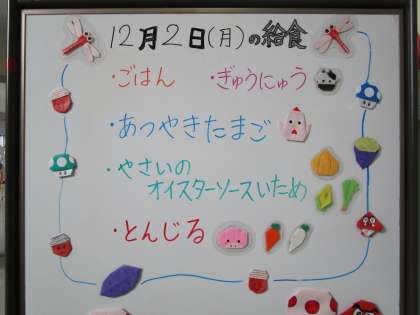 12月2日(月)の給食
・ごはん ・ぎゅうにゅう
・あつやきたまご
・やさいの
オイスターソースいため
・とんじる